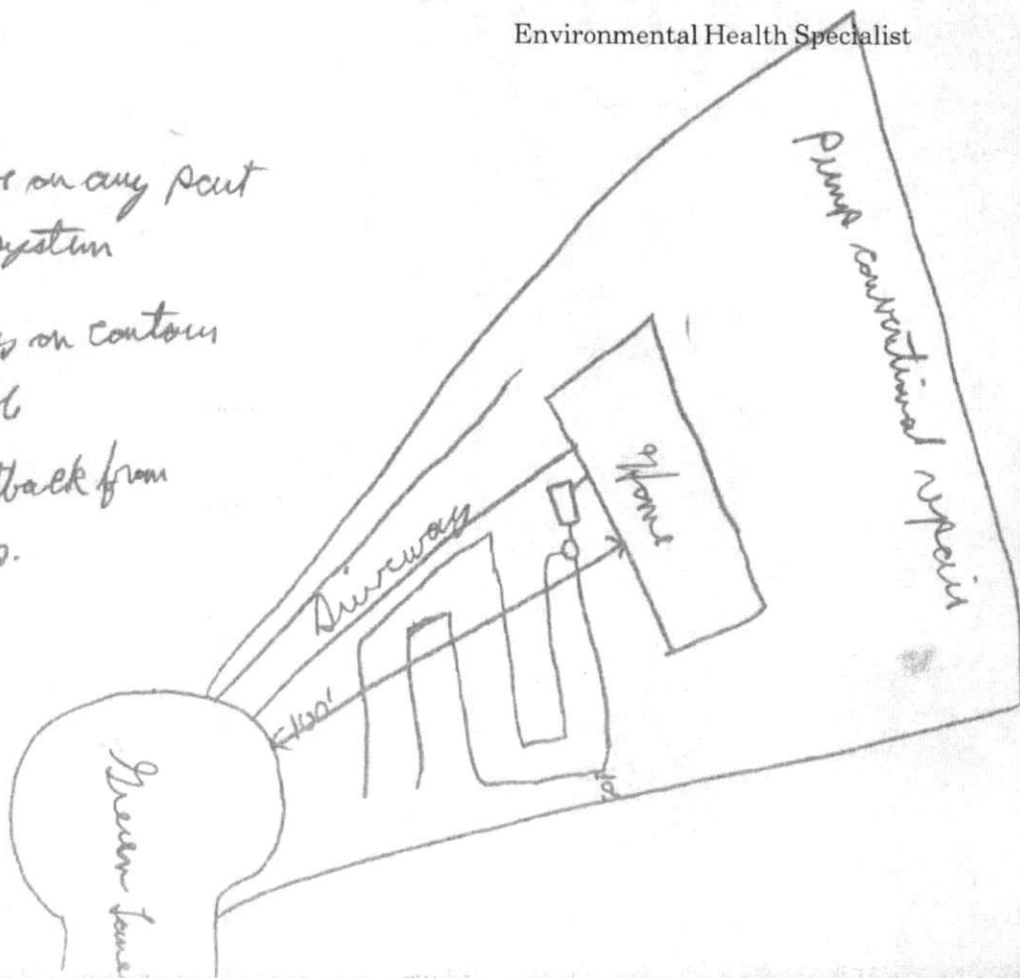 Environmental Health Specialist
on any part
system
on contour
back from
Pump conventional repair
Home
Driveway
100'
10'
Green Lane